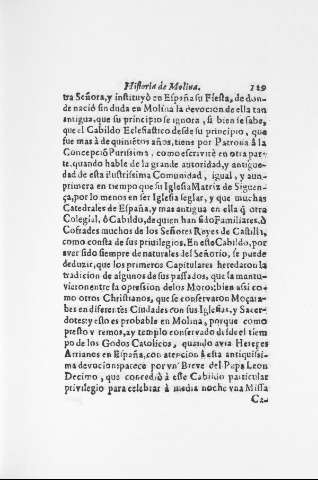 Historia de Molina. 129
tra Señora, y instituyò en España su Fiesta, de don-
de nació sin duda en Molina la devocion de ella tan
antigua, que su principio se ignora, si bien se sabe,
que el Cabildo Eclesiastico desde su principio, que
fue mas à de quinientos años, tiene por Patrona à la
Concepciõ Purissima, como escrivirè en otra par-
te, quando hable de la grande autoridad, y antigue-
dad de esta ilustrissima Comunidad, igual, y aun
primera en tiempo que su Iglesia Matriz de Siguen-
ça, por lo menos en ser Iglesia seglar, y que muchas
Catedrales de España, y mas antigua en ella q̃ otra
Colegial, ò Cabildo, de quien han sido Familiares, ò
Cofrades muchos de los Señores Reyes de Castilla,
como consta de sus priuilegios. En este Cabildo, por
aver sido siempre de naturales del Señorio, se puede
deduzir, que los primeros Capitulares heredaron la
tradicion de algunos de sus passados, que la mantu-
vieron entre la opresion de los Moros; bien assi co-
mo otros Christianos, que se conservaron Moçara-
bes en diferentes Ciudades con sus Iglesias, y Sacer-
dotes: y esto es probable en Molina, porque como
presto veremos, ay templo conservado desde el tiem-
po de los Godos Catolicos, quando avia Hereges
Arrianos en España, con atencion à esta antiquissi-
ma devocion: parece por vn Breve del Papa Leon
Decimo, que concediò à este Cabildo particular
privilegio para celebrar à media noche vna Missa
Ca-